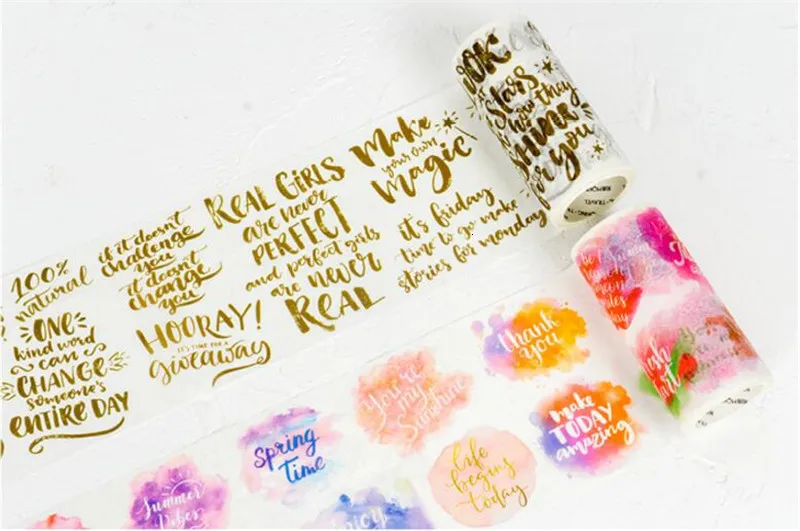 100%
natural
ONE
kind word
can
CHANGE
someone's
ENTIRE DAY
if it doesn't
challenge
you
it doesn't
change
you
HOORAY!
IT'S TIME FOR A
giveaway
REAL GIRLS
are never
PERFECT
and perfect girls
are never
REAL
Make
your own
magic
it's friday
time to go make
stories for monday
Stars
how they
SHINE
for you
thank
you
You're
my
Sunshine
make
TODAY
amazing
Spring
time
life
begins
today
Summer
Vibes